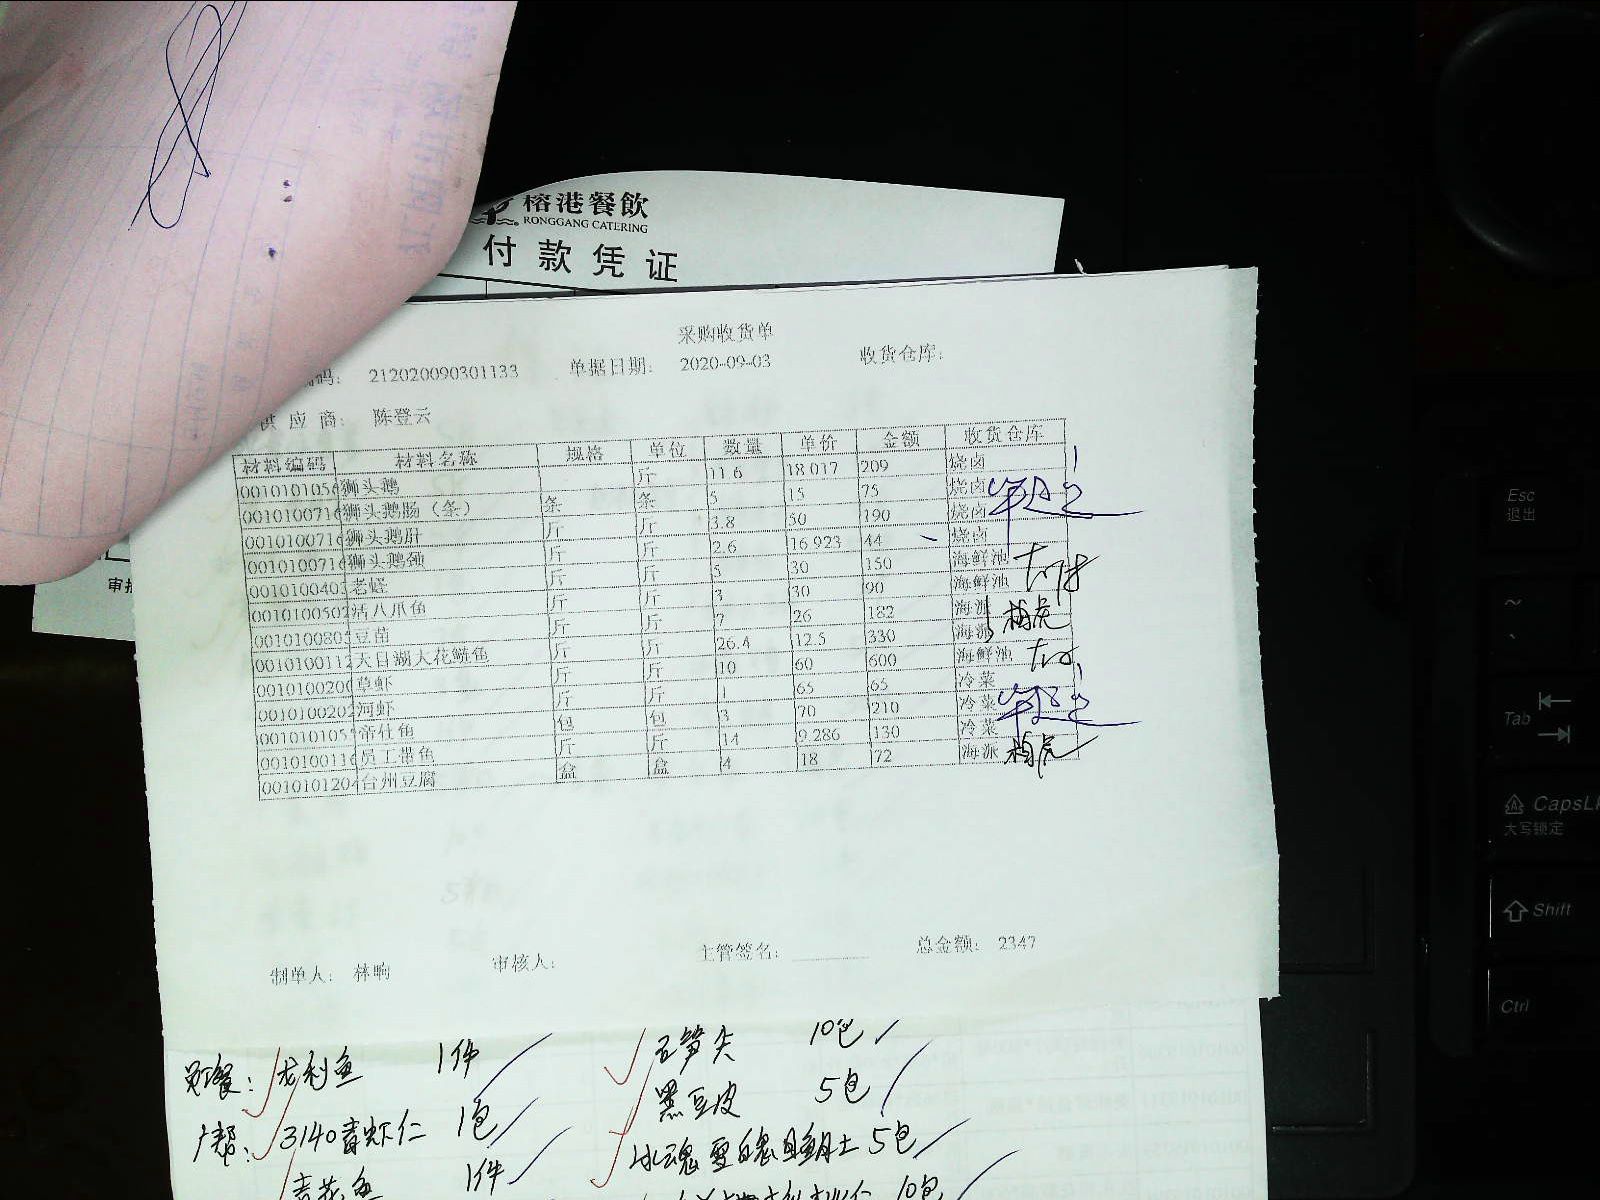 榕港餐飲
RONGGANG CATERING
付款凭证
采购收货单
编码： 212020090301133 单据日期： 2020-09-03 收货仓库：
供应商： 陈登云
材料编码 材料名称 规格 单位 数量 单价 金额 收货仓库
001010105 狮头鹅 斤 11.6 18.017 209 烧卤
001010071 狮头鹅肠（条） 条 条 5 15 75 烧卤
001010071 狮头鹅肝 斤 斤 3.8 50 190 烧卤
001010071 狮头鹅颈 斤 斤 2.6 16.923 44 烧卤
001010040 老蛏 斤 斤 5 30 150 海鲜池
001010050 活八爪鱼 斤 斤 3 30 90 海鲜池
001010080 豆苗 斤 斤 7 26 182 海派
001010011 天目湖大花鲢鱼 斤 斤 26.4 12.5 330 海派
001010020 草虾 斤 斤 10 60 600 海鲜池
001010020 河虾 斤 斤 1 65 65 冷菜
001010105 希仕鱼 包 包 3 70 210 冷菜
001010011 员工带鱼 斤 斤 14 9.286 130 冷菜
001010120 台州豆腐 盒 盒 4 18 72 海派
制单人： 林晌 审核人： 主管签名： 总金额： 2347
龙利鱼 1件 石笋尖 10包
广帮： 3140青虾仁 1包 黑豆皮 5包
1件 5包
10包
Esc
退出
Tab
CapsL
大写锁定
Shift
Ctrl